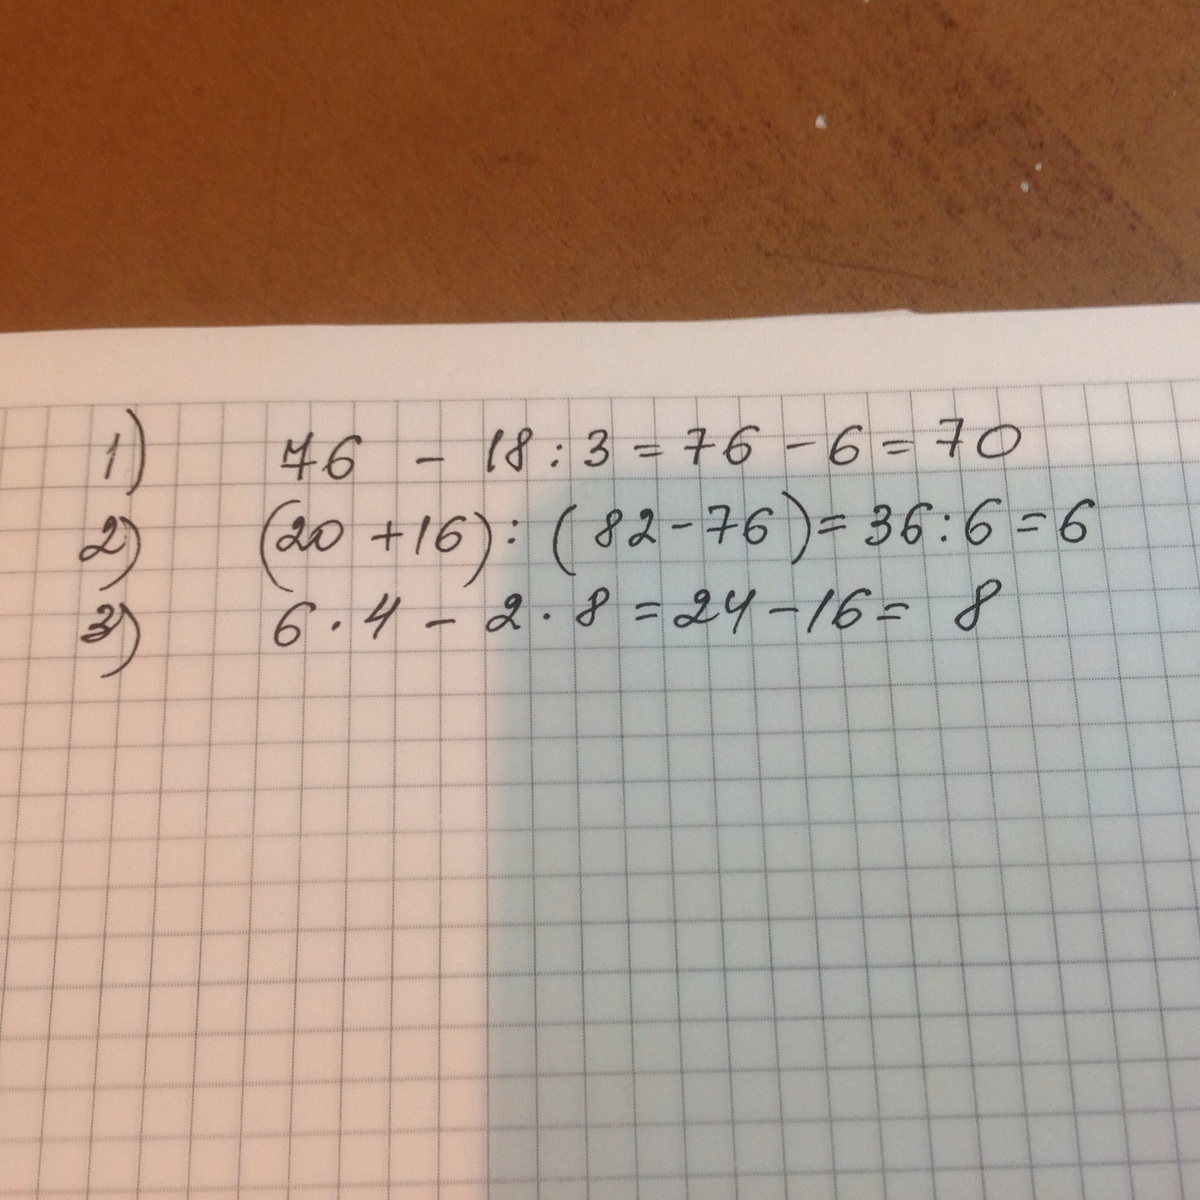 1) 76 - 18 : 3 = 76 - 6 = 70
2) (20 + 16) : (82 - 76) = 36 : 6 = 6
3) 6 · 4 - 2 · 8 = 24 - 16 = 8